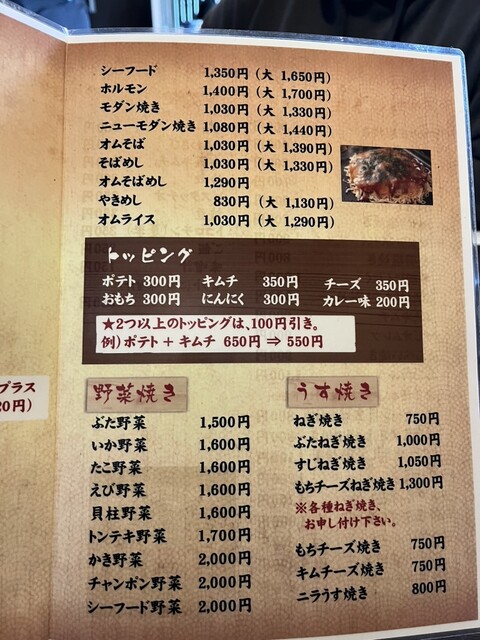 シーフード 1,350円(大 1,650円)
ホルモン 1,400円(大 1,700円)
モダン焼き 1,030円(大 1,330円)
ニューモダン焼き 1,080円(大 1,440円)
オムそば 1,030円(大 1,390円)
そばめし 1,030円(大 1,330円)
オムそばめし 1,290円
やきめし 830円(大 1,130円)
オムライス 1,030円(大 1,290円)
トッピング
ポテト 300円 キムチ 350円 チーズ 350円
おもち 300円 にんにく 300円 カレー味 200円
★2つ以上のトッピングは、100円引き。
例)ポテト + キムチ 650円 ⇒ 550円
プラス
20円)
野菜焼き
ぶた野菜 1,500円
いか野菜 1,600円
たこ野菜 1,600円
えび野菜 1,600円
貝柱野菜 1,600円
トンテキ野菜 1,700円
かき野菜 2,000円
チャンポン野菜 2,000円
シーフード野菜 2,000円
うす焼き
ねぎ焼き 750円
ぶたねぎ焼き 1,000円
すじねぎ焼き 1,050円
もちチーズねぎ焼き 1,300円
※各種ねぎ焼き、
お申し付け下さい。
もちチーズ焼き 750円
キムチーズ焼き 750円
ニラうす焼き 800円